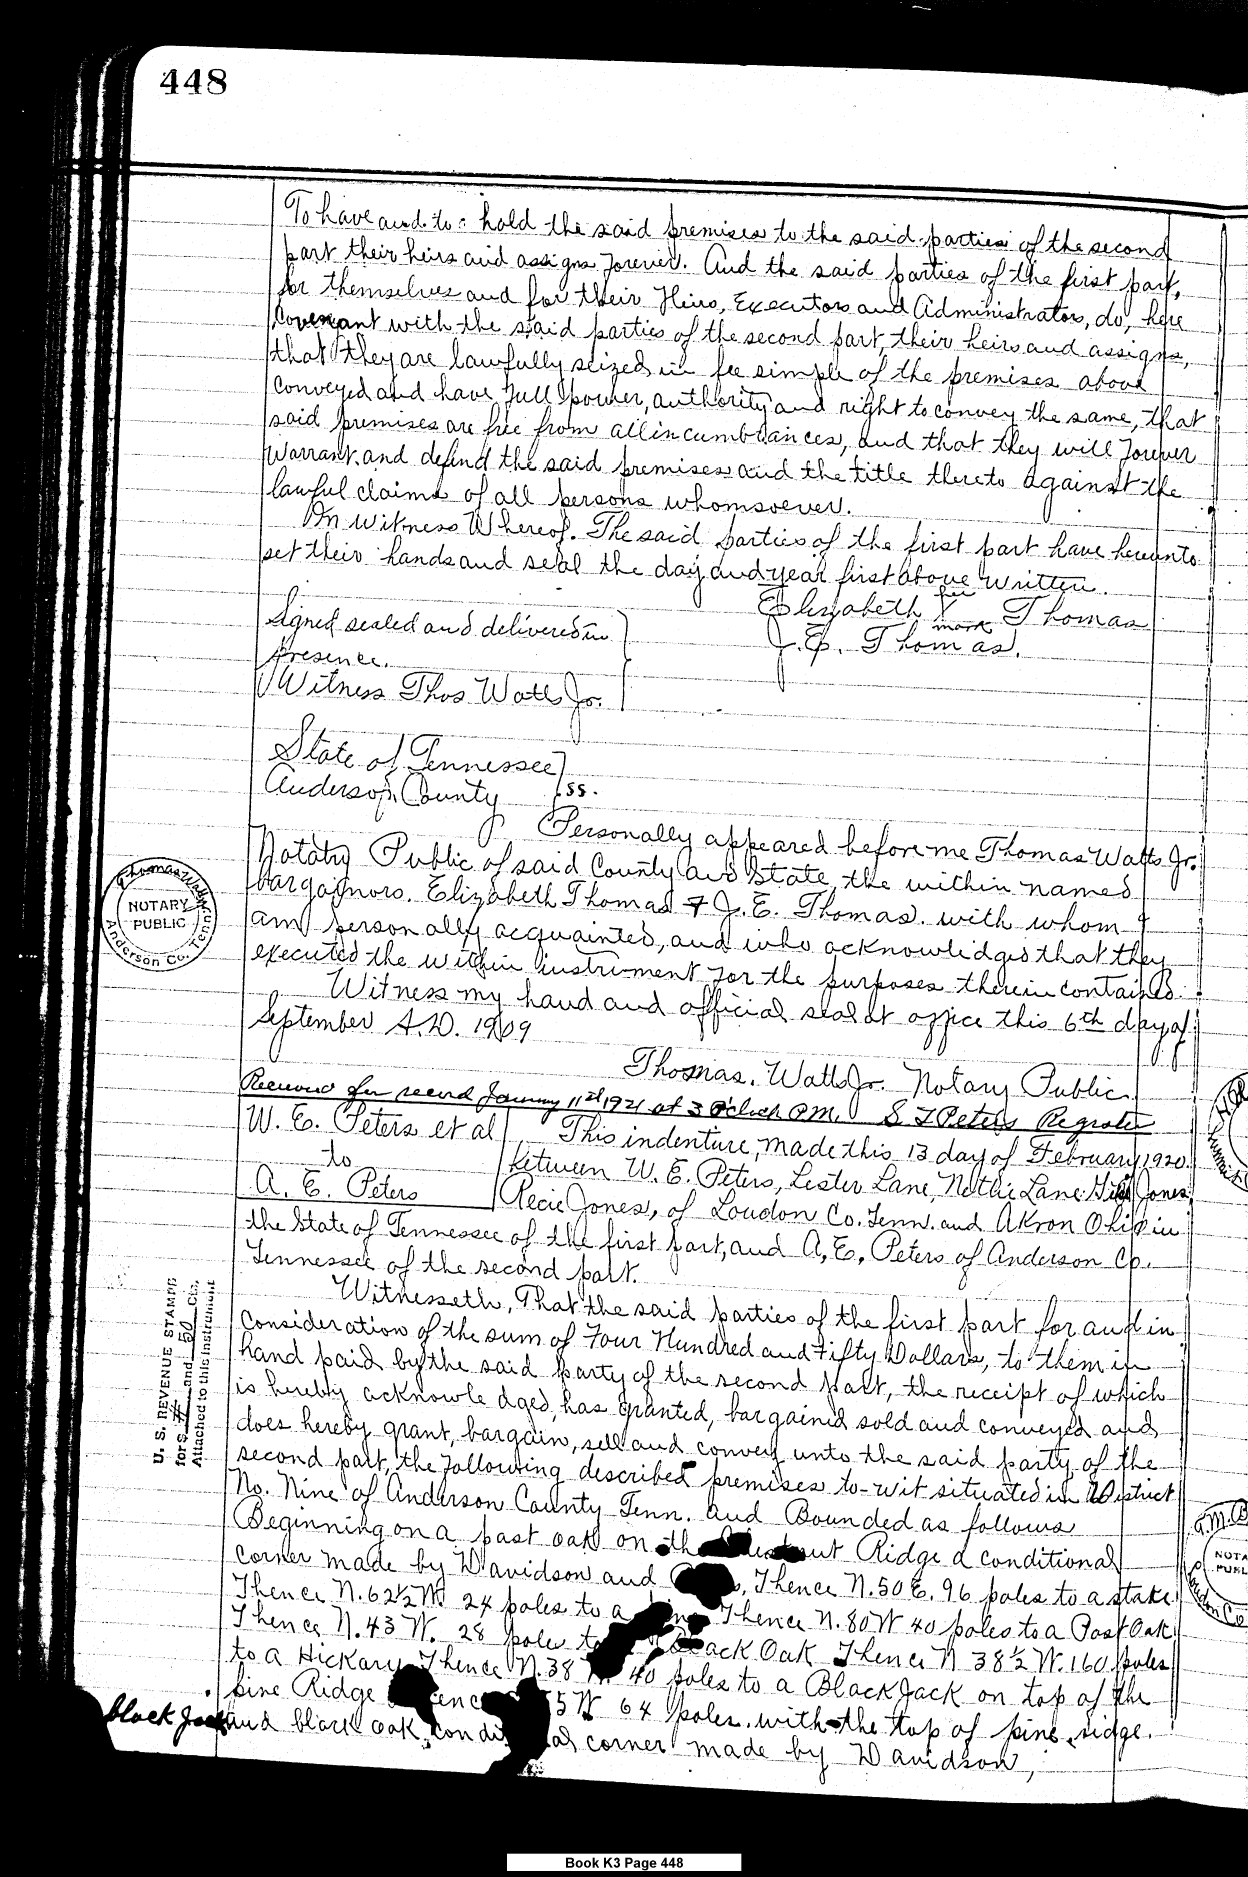 448
To have and to hold the said premises to the said parties of the second
part their heirs and assigns forever. And the said parties of the first part,
for themselves and for their Heirs, Executors and Administrators, do, here
covenant with the said parties of the second part, their heirs and assigns,
that they are lawfully seized in fee simple of the premises above
conveyed and have full power, authority and right to convey the same, that
said premises are free from all incumbrances, and that they will forever
warrant and defend the said premises and the title thereto against the
lawful claims of all persons whomsoever.
In witness Whereof. The said parties of the first part have hereunto
set their hands and seal the day and year first above written.
Elizabeth her X mark Thomas
J. E. Thomas.
Signed sealed and delivered in
presence.
Witness Thos Watts Jr.
State of Tennessee
Anderson County } ss.
Personally appeared before me Thomas Watts Jr.
Notary Public of said County and State, the within named
bargainors. Elizabeth Thomas & J. E. Thomas. with whom I
am personally acquainted, and who acknowledged that they
executed the within instrument for the purposes therein contained.
Witness my hand and official seal at office this 6th day of
September A.D. 1909
Thomas Watts Jr.
NOTARY
PUBLIC
Anderson Co. Tenn
Thomas. Watts Jr. Notary Public
Received for record January 11st 1921 at 3 O'clock P.M. S T Peters Register
W. E. Peters et al
to
A. E. Peters
This indenture, made this 13 day of February 1920.
between W. E. Peters, Lester Lane, Nettie Lane Jones,
Recie Jones, of Loudon Co. Tenn. and Akron Ohio in
the State of Tennessee of the first part, and A, E, Peters of Anderson Co.
Tennessee of the second part.
U. S. REVENUE STAMPS
for $ and 50 Cts.
Attached to this Instrument
Witnesseth, That the said parties of the first part for and in
consideration of the sum of Four Hundred and Fifty Dollars, to them in
hand paid by the said party of the second part, the receipt of which
is hereby acknowledged, has granted, bargained sold and conveyed and
does hereby grant, bargain, sell and convey unto the said party of the
second part, the following described premises to-wit situated in District
No. Nine of Anderson County Tenn. and Bounded as follows
Beginning on a past oak on the Ridge a conditional
corner made by Davidson and Thence N. 50 E. 96 poles to a stake
Thence N. 62½ W 24 poles to a Thence N. 80 W 40 poles to a Post Oak
Thence N. 43 W. 28 pole to Black Oak Thence N 38½ W. 160 poles
to a Hickary Thence N. 38 W 40 poles to a Black Jack on top of the
pine Ridge 5 W 64 poles. with the top of pine ridge.
black Jack and black oak, conditional corner made by Davidson,
A. M.
NOTA
PUBL
Loudon Co
Book K3 Page 448